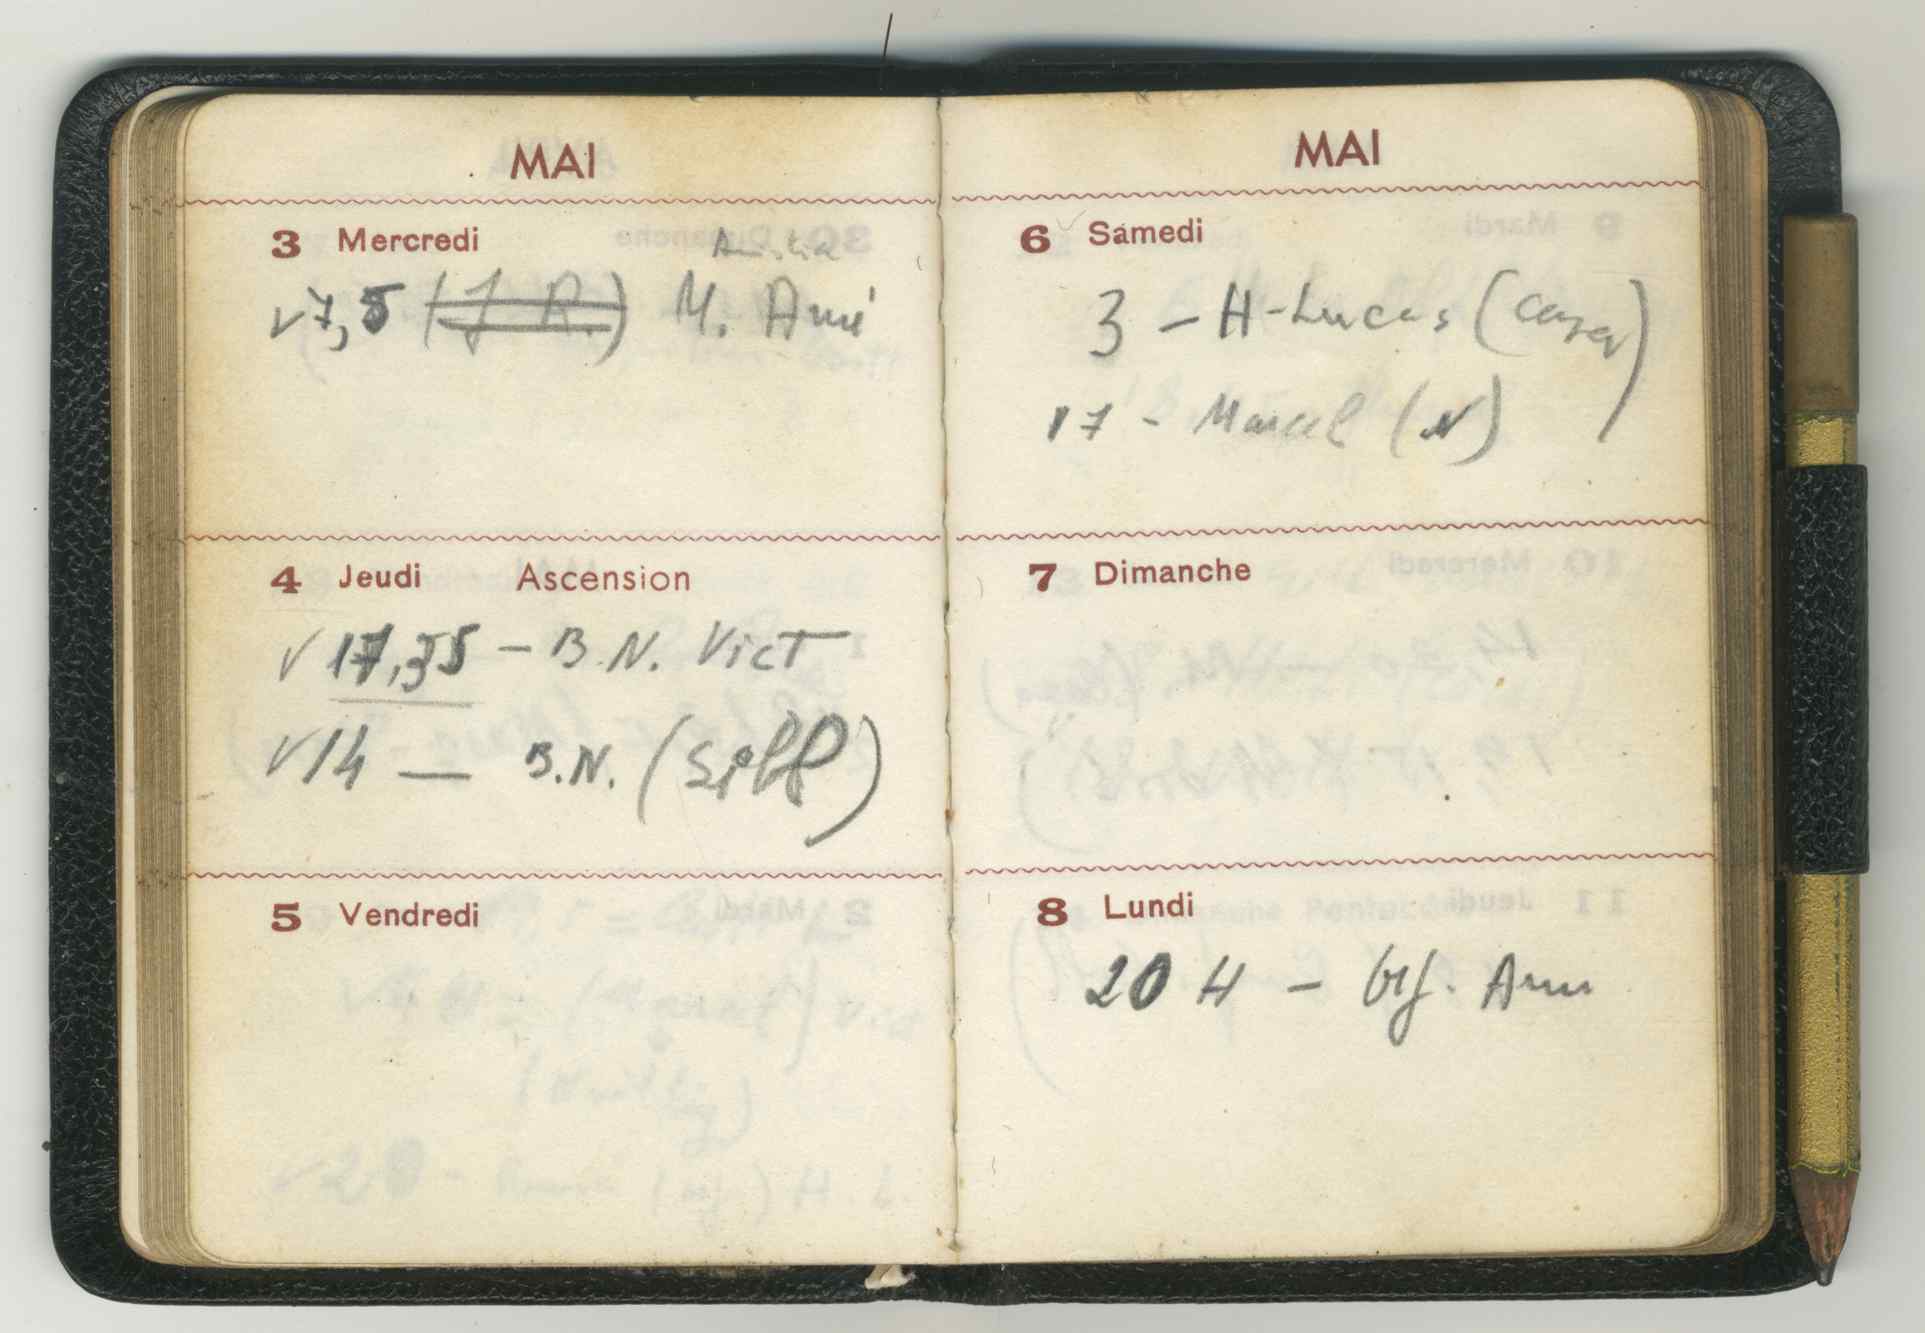 MAI
3 Mercredi
7,5 (J R.) M. Amé
4 Jeudi Ascension
√ 17,35 – B.N. Vict
√ 14 — B.N. (Siff)
5 Vendredi
MAI
6 Samedi
3 – H-Lucas
17 - Marcel (N)
7 Dimanche
8 Lundi
20 H –